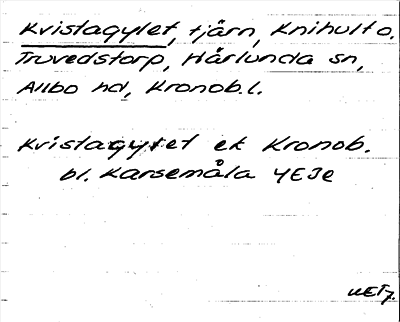 Kvistagylet, tjärn, Knihult o.
Truvedstorp, Härlunda sn,
Allbo hd, Kronob.l.
Kristagylet ek Kronob.
bl. Karsemåla 4E3e